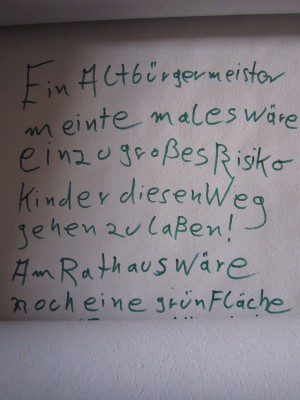 Ein Altbürgermeister
meinte mal es wäre
ein zu großes Risiko
Kinder diesen Weg
gehen zu laßen!
Am Rathaus wäre
noch eine grünFläche